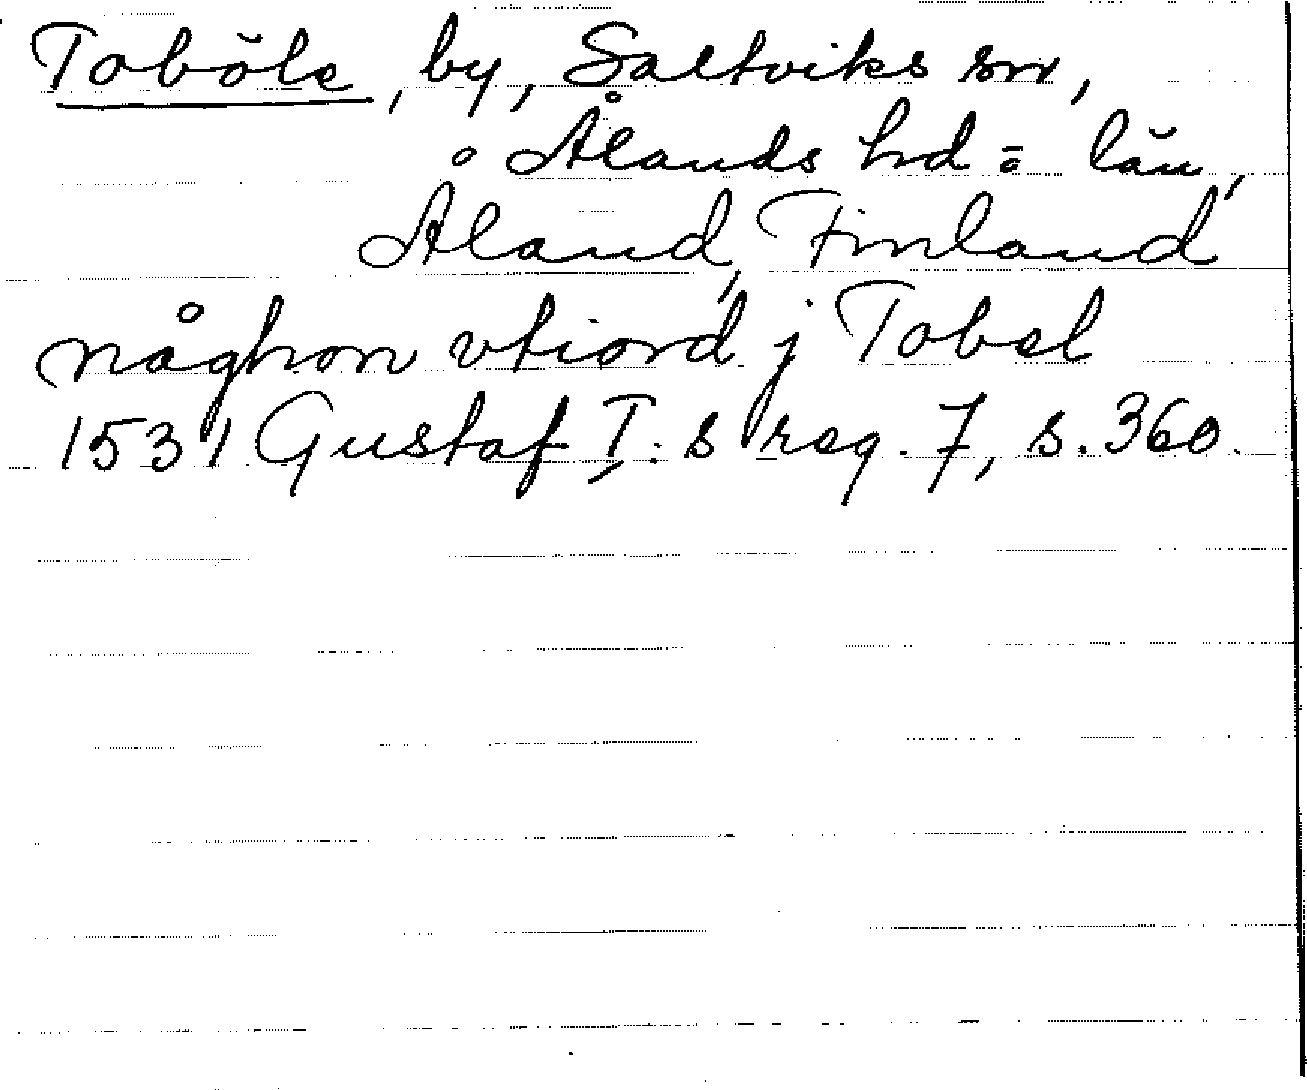 Toböle, by, Saltviks sn,
Ålands hd o. län,
Åland, Finland
någhon vtiord j Tobel
1531 Gustaf I:s reg. 7, s. 360.